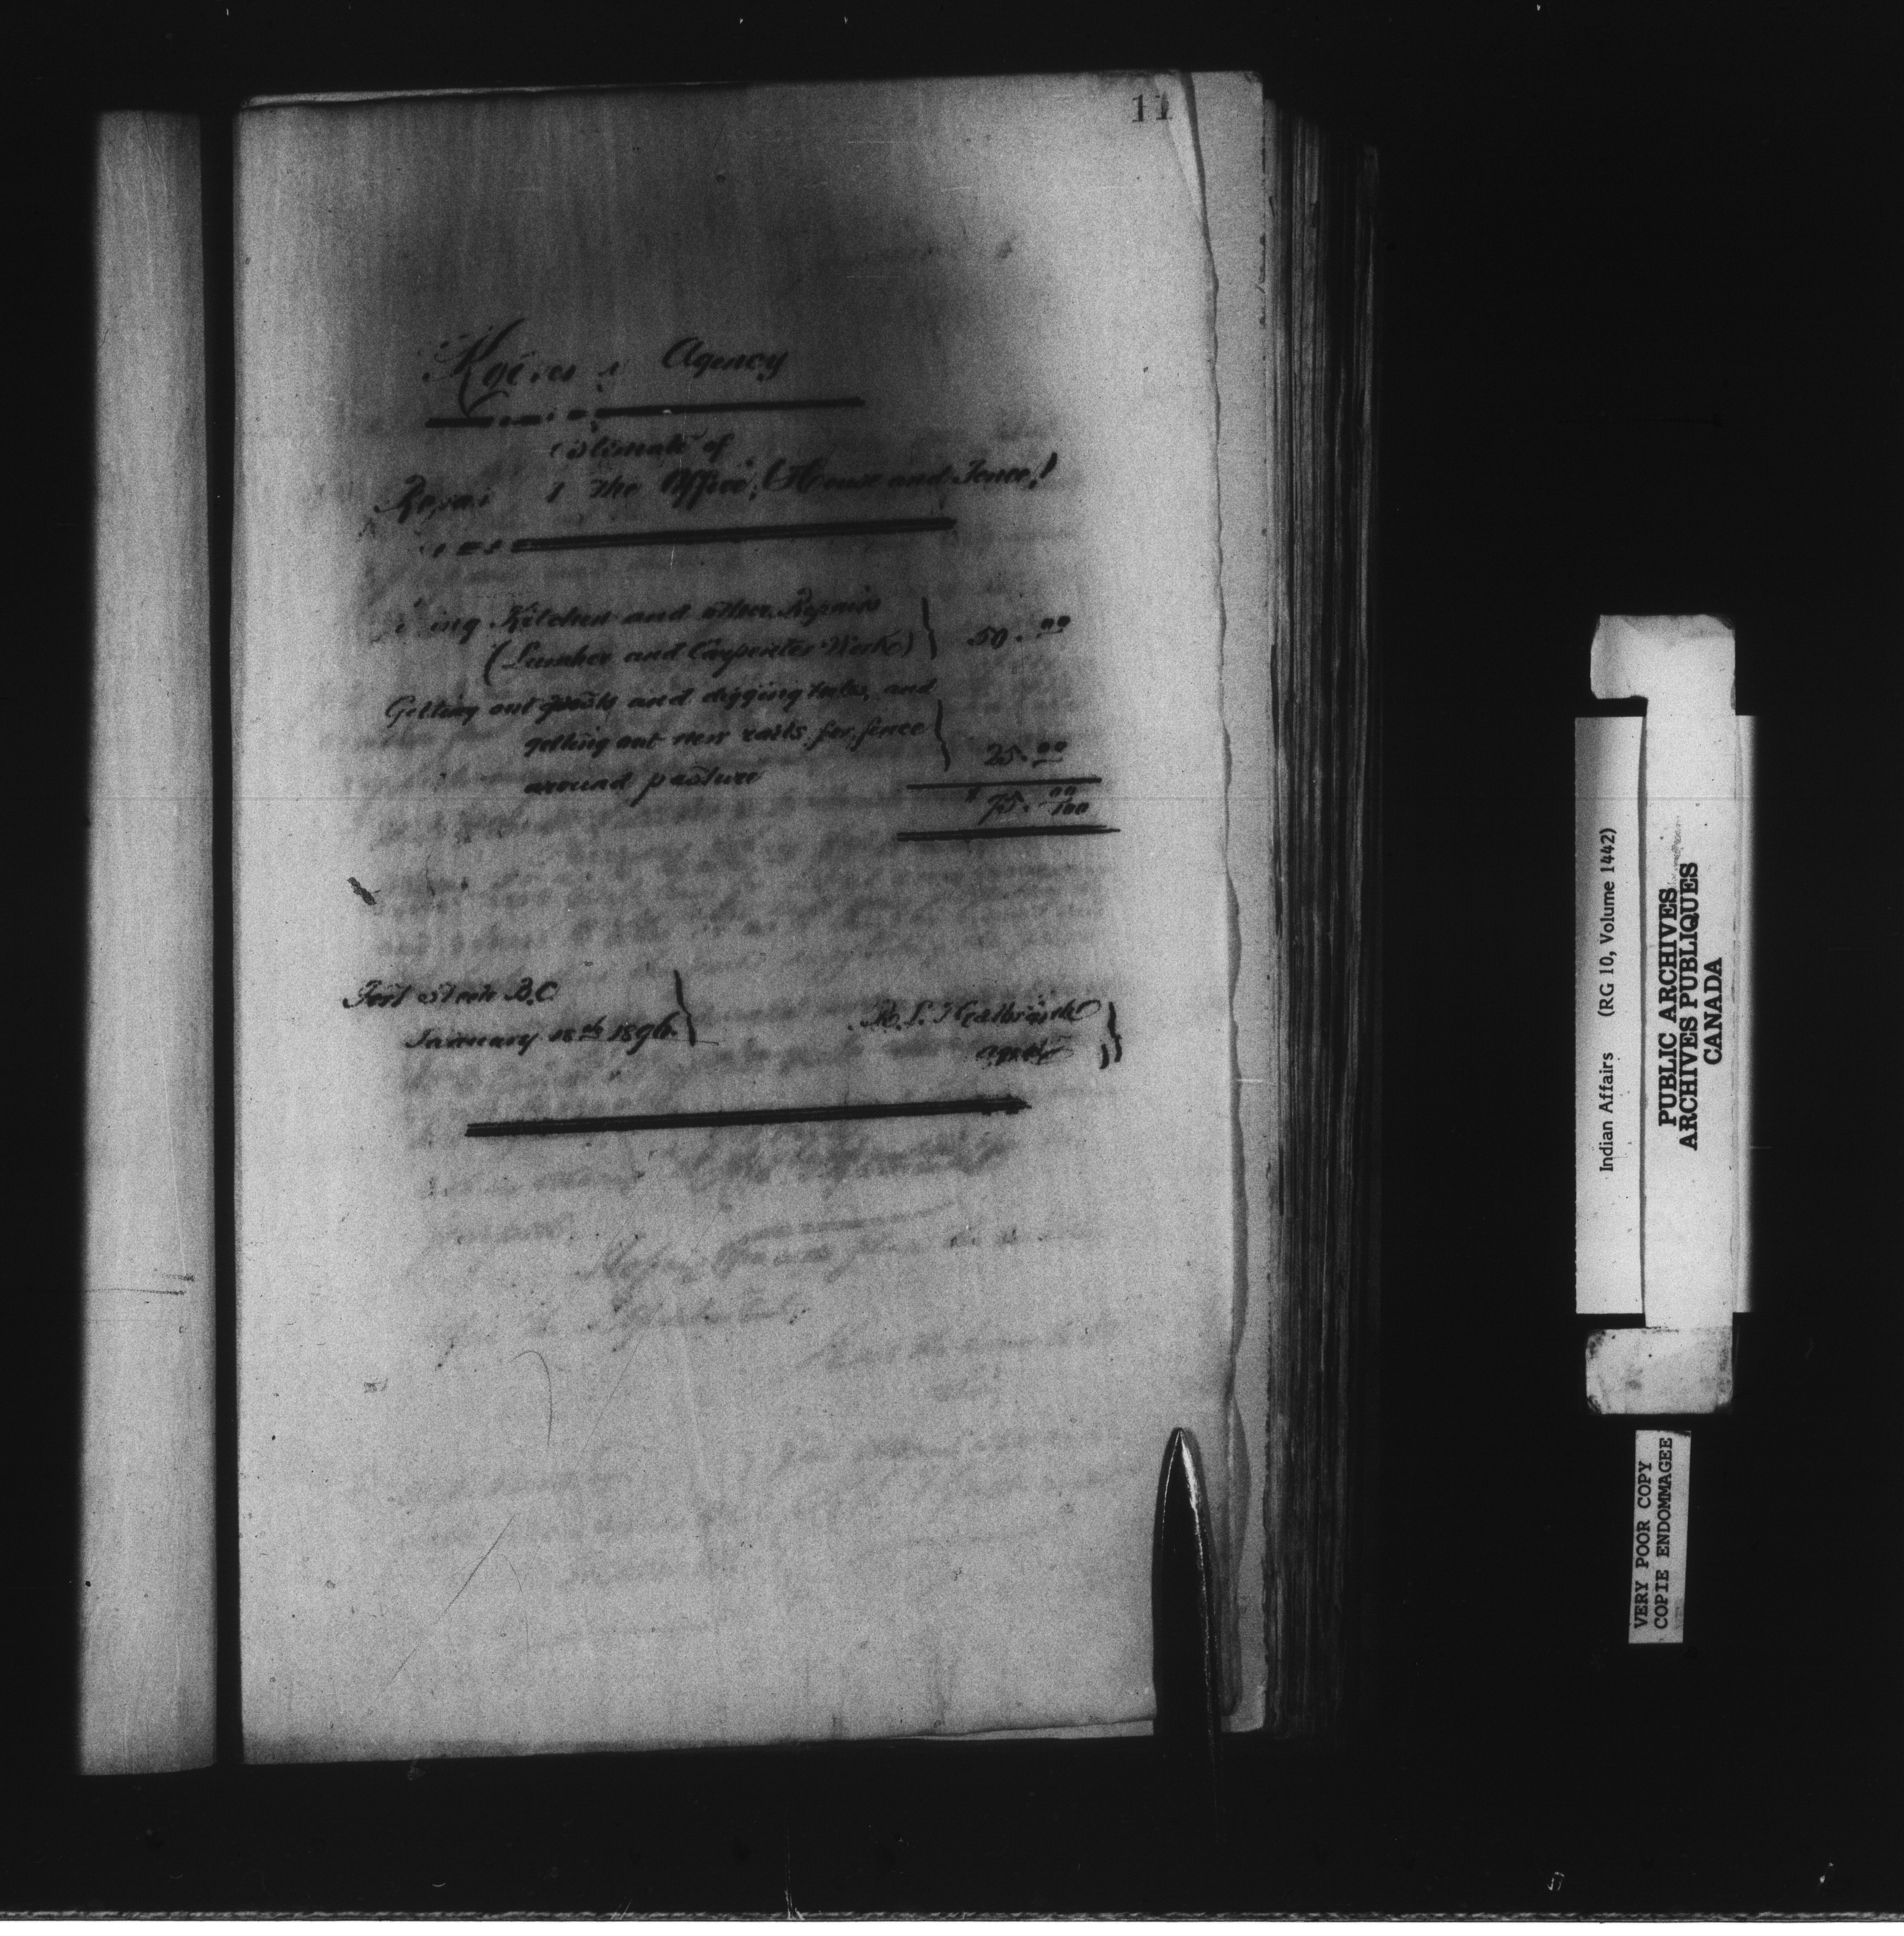 11
Agency
Estimate of
Repai the Office, (House and Fence)
ing Kitchen and other Repairs
(Lumber and Carpenter Work) } 50.00
Getting out posts and digging holes, and
getting out new rails for fence
around pasture } 25.00
$75.00/100
Fort Steele B.C.
January 18th 1896.
R. L. T. Galbraith
agent
Indian Affairs (RG 10, Volume 1442)
PUBLIC ARCHIVES
ARCHIVES PUBLIQUES
CANADA
VERY POOR COPY
COPIE ENDOMMAGEE